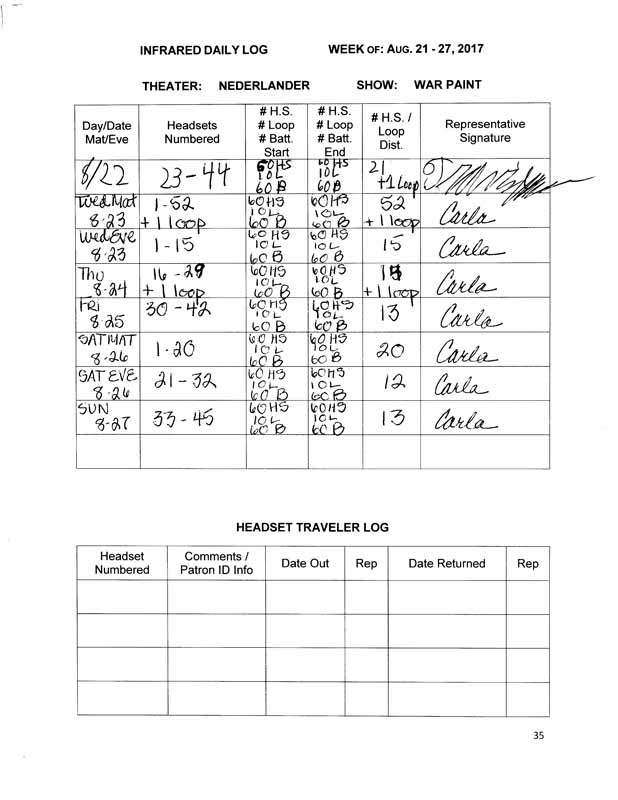 INFRARED DAILY LOG WEEK OF: AUG. 21 - 27, 2017
THEATER: NEDERLANDER SHOW: WAR PAINT
Day/Date Mat/Eve Headsets Numbered # H.S. # Loop # Batt. Start # H.S. # Loop # Batt. End # H.S. / Loop Dist. Representative Signature
8/22 23-44 60HS 10L 60B 60HS 10L 60B 21 +1 Loop
Wed Mat 8.23 1-52 + 1 loop 60HS 10L 60B 60HS 10L 60B 52 + 1 loop Carla
Wed Eve 8.23 1-15 60 HS 10L 60B 60 HS 10L 60B 15 Carla
Thu 8.24 16-29 + 1 loop 60HS 10L 60B 60HS 10L 60B + 1 loop Carla
FRI 8.25 30-42 60HS 10L 60B 60HS 10L 60B 13 Carla
SAT MAT 8.26 1-20 60 HS 10L 60B 60 HS 10L 60B 20 Carla
SAT EVE 8.26 21-32 60 HS 10L 60B 60HS 10L 60B 12 Carla
SUN 8-27 33-45 60HS 10L 60B 60HS 10L 60B 13 Carla
HEADSET TRAVELER LOG
Headset Numbered Comments / Patron ID Info Date Out Rep Date Returned Rep
35